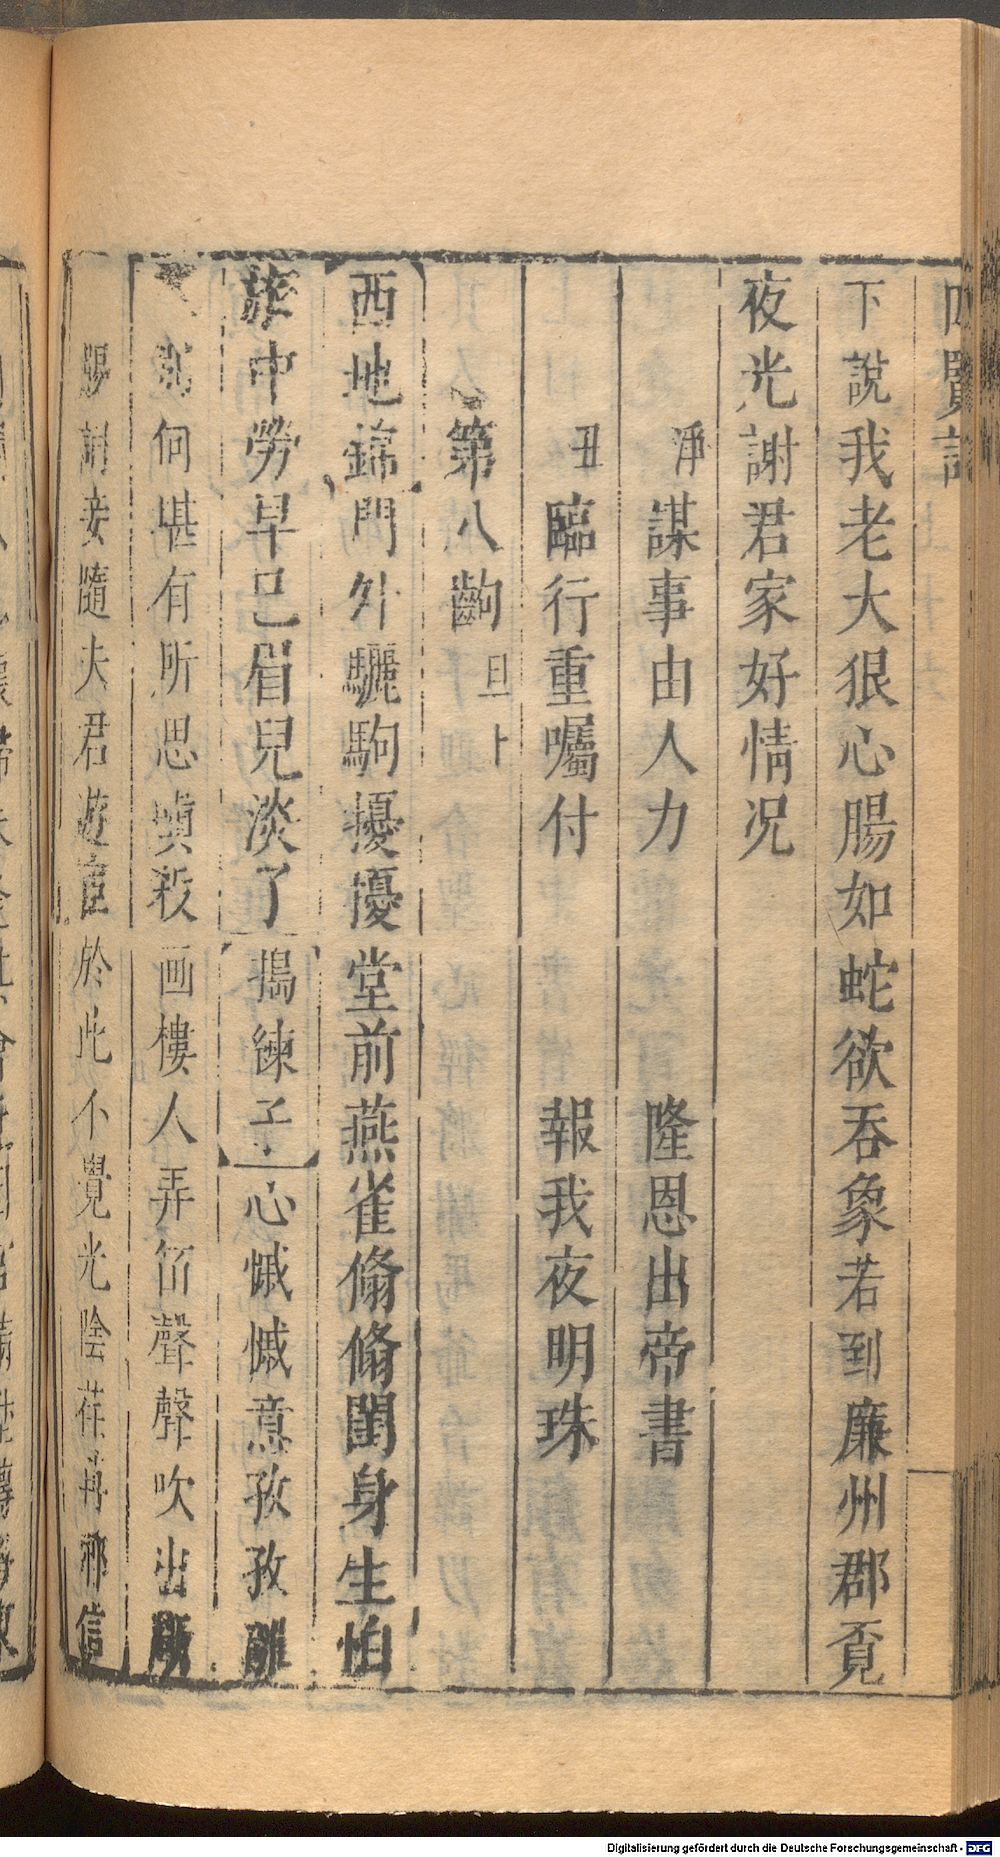 四賢記
下說我老大狠心腸如蛇欲吞象若到廉州郡覔
夜光謝君家好情况
淨謀事由人力 隆恩出帝書
丑臨行重囑付 報我夜明珠
第八齣 旦上
西地錦門外驪駒擾擾堂前燕雀翛翛閨身生怕
旅中勞早已眉兒淡了搗練子心慽慽意孜孜離
何堪有所思塡殺画樓人弄笛聲聲聲吹出
妾隨夫君遊宦於此不覺光陰荏苒鄉信
Digitalisierung gefördert durch die Deutsche Forschungsgemeinschaft - DFG